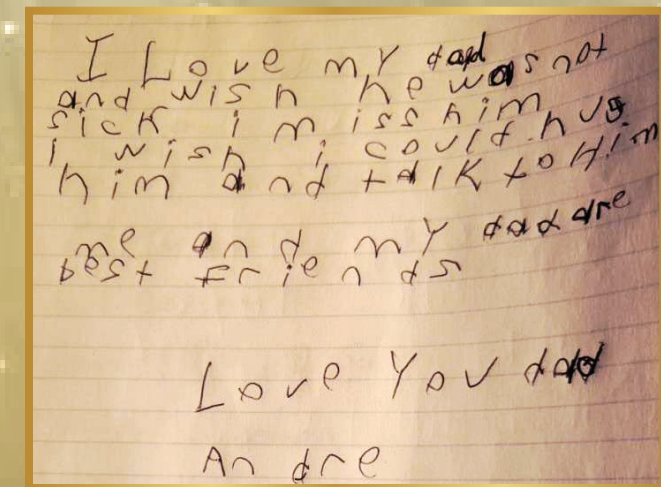 I Love my dad
and wish he was not
sick i miss him
i wish i could hug
him and talk to Him
me and my dad are
best friends
Love You dad
Andre